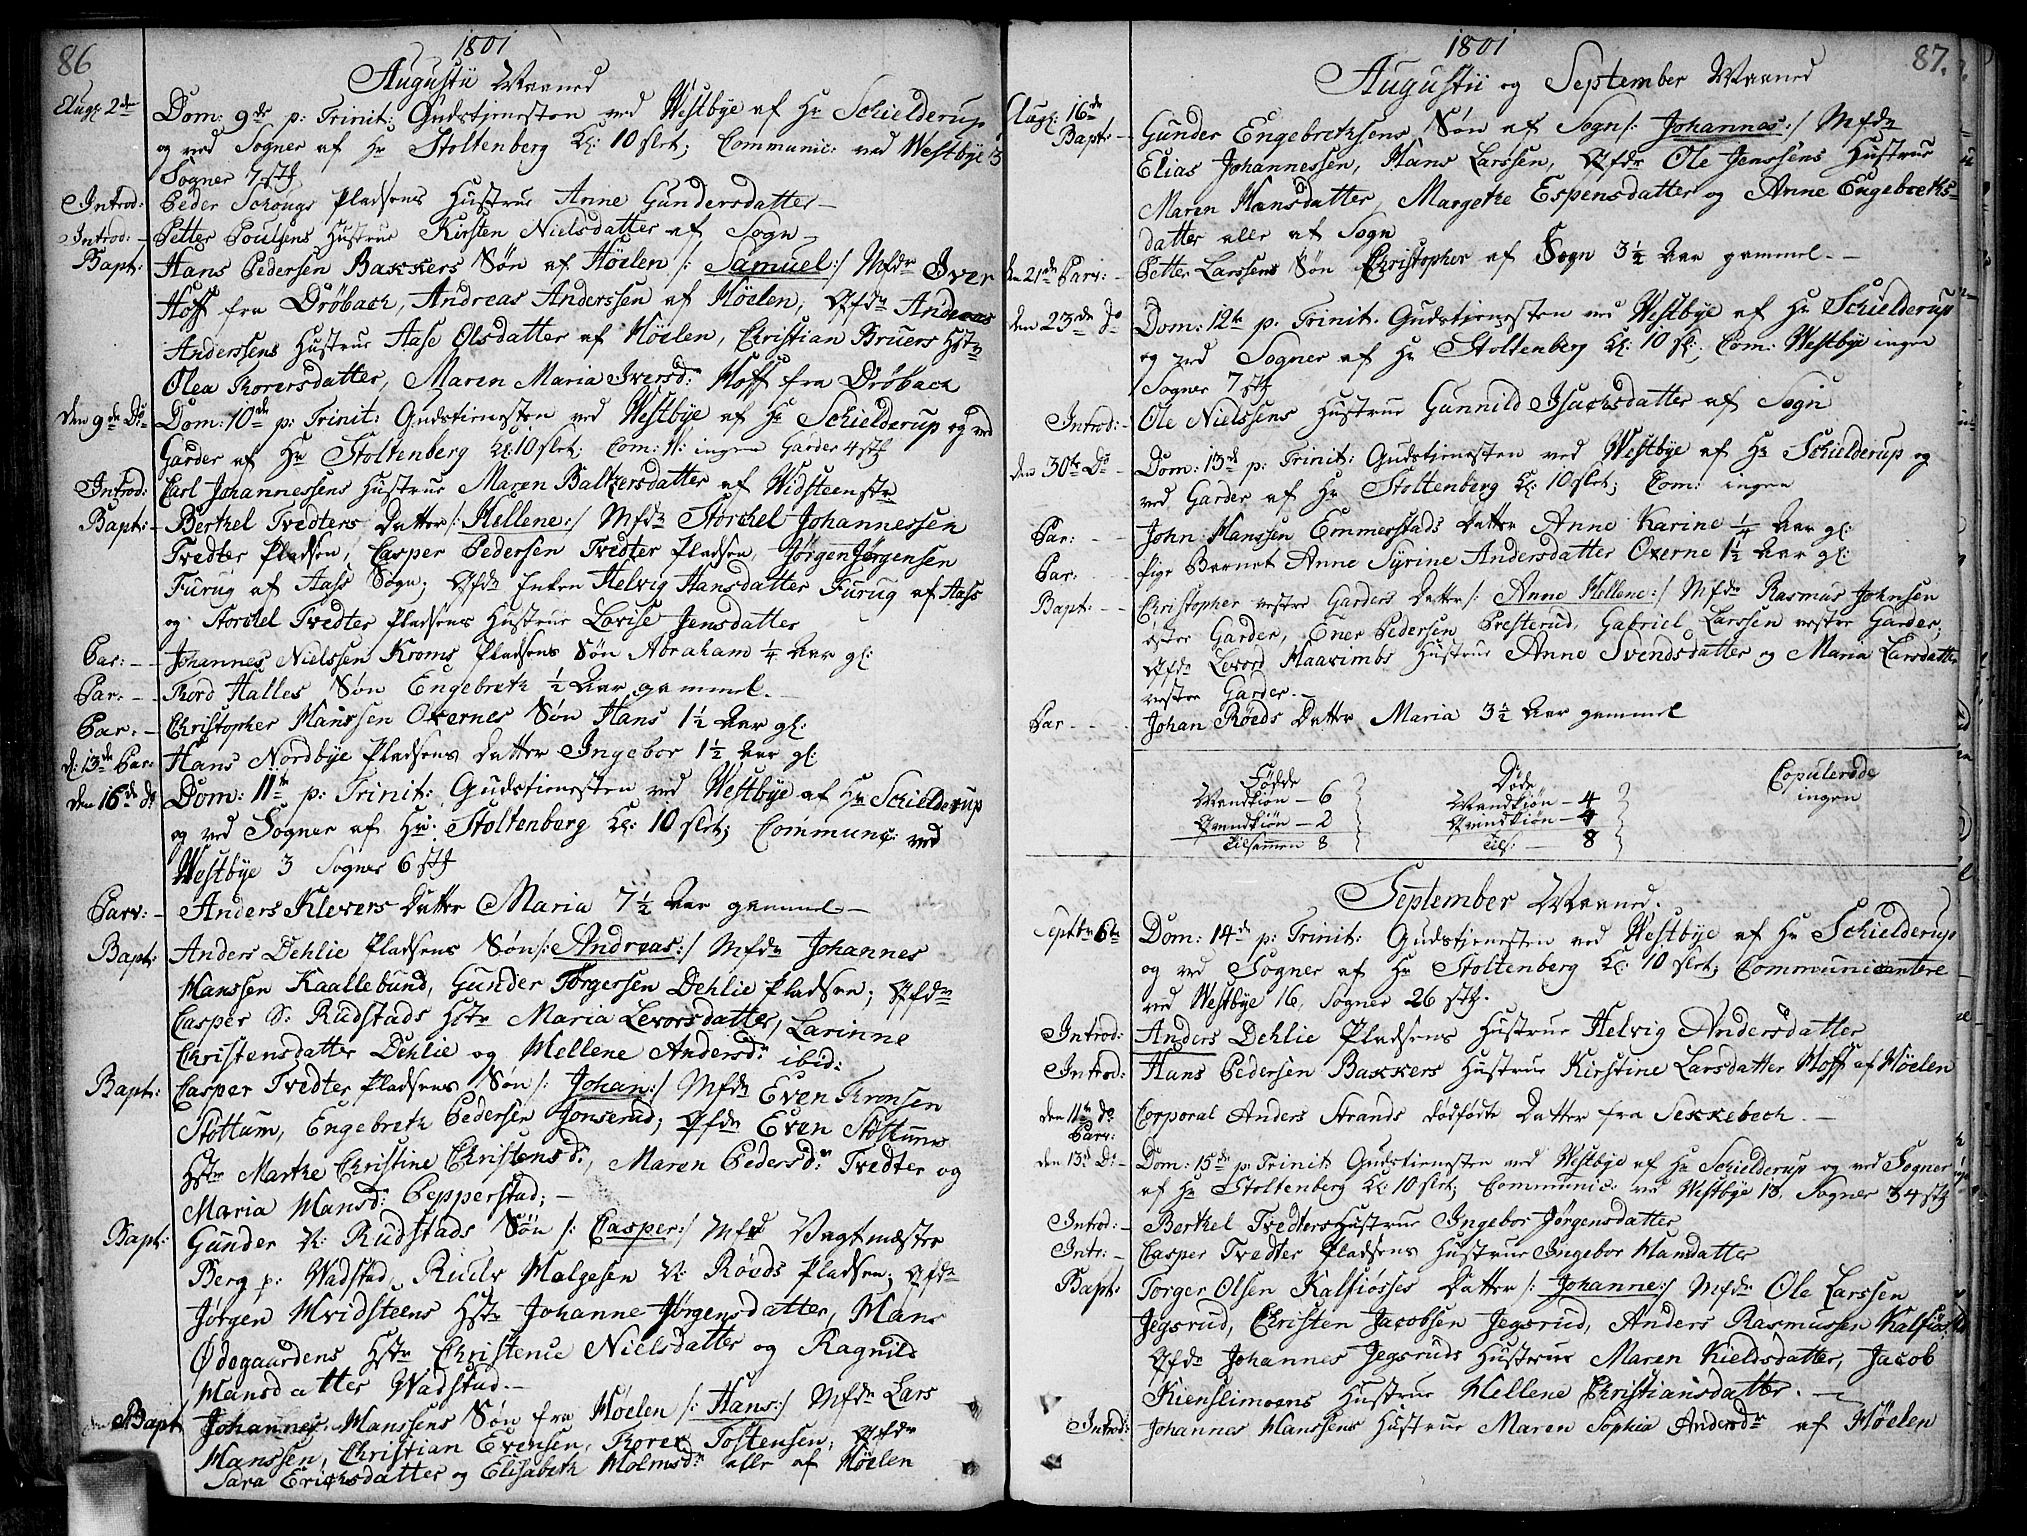 86
1801
Augustii Maaned
Aug: 2de Dom: 9de p: Trinit: Gudstienesten ved Westbye af Hr Schielderup
og ved Sogner af Hr Stoltenberg Kl: 10 slet; Communic: ved Westbye 3
Sogner 7 stk
Introd: Peder Schougs Pladsens Hustrue Anne Gundersdatter
Introd: Petter Poulsens Hustrue Kirsten Nielsdatter af Sogn
Bapt: Hans Pedersen Bakkers Søn af Höelen /: Samuel :/ Mfdr Iver
Hoff fra Dröbach, Andreas Anderssen af Höelen, Qfdr Andreas
Anderssens Hustrue Aase Olsdatter af Höelen, Christian Bruers Hstr
Olea Thorersdatter, Maren Maria Iversd: Hoff fra Dröbach
den 9de Do Dom: 10de p: Trinit: Gudstienesten ved Westbye af Hr Schielderup og ved
Garder af Hr Stoltenberg Kl: 10 slet; Com: W: ingen Garder 4 stk
Introd: Carl Johannessens Hustrue Maren Balkersdatter af Widsteen
Bapt: Berthel Tvedters Datter /: Hellene :/ Mfdr Storchel Johannessen
Tvedter Pladsen, Casper Pedersen Tvedter Pladsen, Jörgen Jörgensen
Furug af Aass Sogn; Qfdr Enken Helvig Hansdatter Furug af Aass
og Storchel Tvedter Pladsens Hustrue Lovise Jensdatter
Par: Johannes Nielssen Kroms Pladsens Søn Abraham 1/4 Aar gl:
Par: Thord Halles Søn Engebreth 1/2 Aar gammel
Par: Christopher Hanssen Oxernes Søn Hans 1 1/2 Aar gl:
d: 13de Par: Hans Nordbye Pladsens Datter Ingebor 1 1/2 Aar gl:
den 16de do Dom: 11te p: Trinit: Gudstienesten ved Westbye af Hr Schielderup
og ved Sogner af Hr: Stoltenberg Kl: 10 slet; Communic: ved
Westbye 3 Sogner 6 stk
Parv: Anders Klevers Datter Maria 7 1/2 Aar gammel
Bapt: Anders Dehlie Pladsens Søn /: Andreas :/ Mfdr Johannes
Hanssen Kaallebund, Gunder Torgersen Dehlie Pladsen; Qfdr
Casper S: Rudstads Hstr Maria Levorsdatter, Larinne
Christensdatter Dehlie og Hellene Andersd: ibid:
Bapt: Casper Tvedter Pladsens Søn /: Johan :/ Mfdr Even Thronsen
Stöttum, Engebreth Pedersen Jonserud; Qfdr Even Stöttums
Hstr Marthe Christine Christensd:, Maren Pedersd: Tvedter og
Maria Hansd: Pepperstad;
Bapt: Gunder N: Rudstads Søn /: Casper :/ Mfdr Vagtmester
Berg p: Wadstad, Halgesen N: Röeds Pladsen; Qfdr
Jörgen Hvidsteens Hstr Johanne Jörgensdatter, Hans
Ödegaardens Hstr Christence Nielsdatter og Ragnild
Hansdatter Wadstad
Bapt Johannes Hanssens Søn fra Höelen /: Hans :/ Mfdr Lars
Hanssen, Christian Evensen, Thorer Tostensen, Qfdr
Sara Erichsdatter og Elisabeth Holmsdr alle af Höelen
1801
87.
Augustii og September Maaned
Aug: 16de
Bapt: Gunder Engebrethsens Søn af Sogn /: Johannes :/ Mfdr
Elias Johannessen, Hans Larssen, Qfdr Ole Jenssens Hustrue
Maren Hansdatter, Margethe Espensdatter og Anne Engebreths-
datter alle af Sogn
den 21de Parv: Petter Larssens Søn Christopher af Sogn 3 1/2 Aar gammel
den 23de Do Dom: 12te p: Trinit: Gudstienesten ved Westbye af Hr Schielderup
og ved Sogner af Hr Stoltenberg Kl: 10 sl:, Com: Westbye ingen
Sogner 7 stk
Introd: Ole Nielssens Hustrue Gunnild Isachsdatter af Sogn
den 30te Do Dom: 13de p: Trinit: Gudstienesten ved Westbye af Hr Schielderup og
ved Garder af Hr Stoltenberg Kl: 10 slet; Com: ingen
Par: John Hanssen Emmerstads Datter Anne Karine 1/4 Aar gl:
Par: Pige Barnet Anne Syrine Andersdatter Oxerne 1 1/2 Aar gl:
Bapt: Christopher vestre Garders Datter /: Anne Hellene :/ Mfdr Rasmus Johnsen
östre Garder, Ener Pedersen Presterud, Gabriel Larssen vestre Garder,
Qfdr Levord Haavimbs Hustrue Anne Svendsdatter og Maria Larsdatter
vestre Garder.
Par Johan Röeds Datter Maria 3 1/2 Aar gammel
Födde
Mandkiön - 6
Qvindkiön - 2
tilsammen 8
Döde
Mandkiön - 4
Qvindkiön - 4
tils: - 8
Copulerede
ingen
September Maaned.
Septbr 6te Dom: 14de p: Trinit: Gudstienesten ved Westbye af Hr Schielderup
og ved Sogner af Hr Stoltenberg Kl: 10 slet; Communicantere
ved Westbye 16, Sogner 26 stk.
Introd: Anders Dehlie Pladsens Hustrue Helvig Andersdatter
Introd: Hans Pedersen Bakkers Hustrue Kirstine Larsdatter Hoff af Höelen
den 11te do
Parv: Corporal Anders Strands dödfödte Datter fra Sekkebech
den 13de Do Dom: 15de p: Trinit: Gudstienesten ved Westbye af Hr Schielderup og ved Sogner
af Hr Stoltenberg Kl: 10 slet; Communic: ved Westbye 13, Sogner 34 stk
Introd: Berthel Tvedters Hustrue Ingebor Jörgensdatter
Intr: Casper Tvedter Pladsens Hustrue Ingebor Hansdatter
Bapt: Torger Olsen Kalfiösses Datter /: Johanne :/ Mfdr Ole Larssen
Jegsrud, Christen Jacobsen Jegsrud, Anders Rasmussen Kalfiös
Qfdr Johannes Jegsruds Hustrue Maren Kieldsdatter, Jacob
Kienslimoens Hustrue Hellene Christiansdatter.
Introd: Johannes Hanssens Hustrue Maren Sophia Andersdr af Höelen